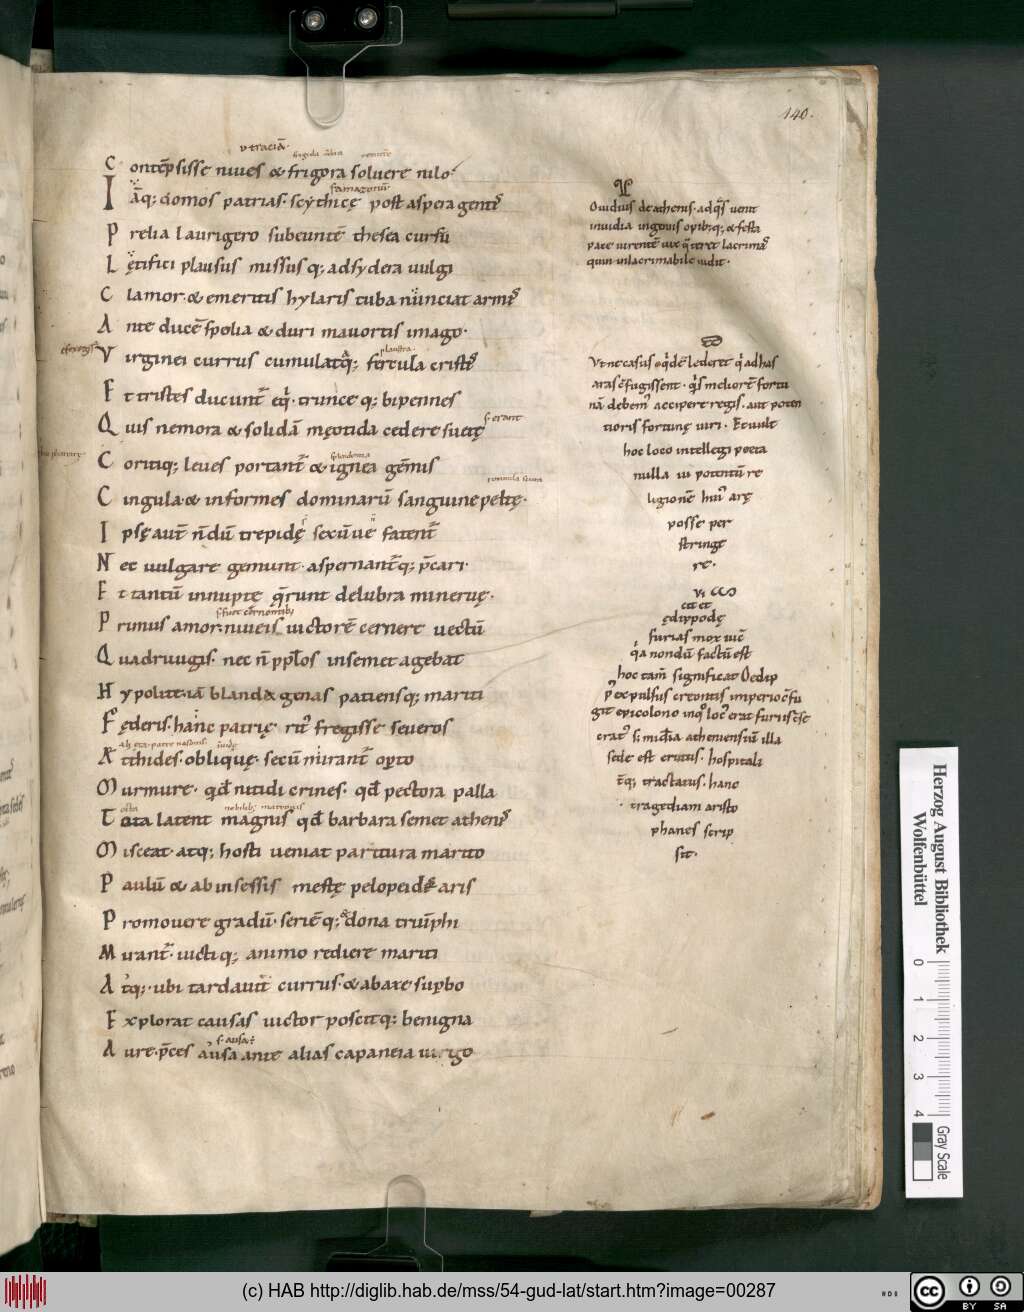 140.
utraciā.
C ontēpsisse niues & frigora soluere nilo
famagoruʒ
I āq; domos patrias. scẏthicę post aspera gentꝭ
P relia laurigero subeuntē thesea currū
L ętifici plausus missusq; adsydera uulgi
C lamor. & emeritis hylaris tuba nunciat armꝭ
A nte ducē spolia & duri mauortis imago.
plaustra.
V irginei currus cumulataq; fercula cristꝭ
E t tristes ducunt̄ eq̇. truncęq; bipennes
s. erant
Q uis nemora & solidā męotida cedere suetę
C oritiq; leues portant̄ & ignea gēmis
C ingula. & informes dominarū sanguine peltę.
I psę aut̄ n̄dū trepidę sexūue fatent̄
N ec uulgare gemunt. aspernant̄q; p̄cari.
E t tantū innuptę q̄runt delubra mineruę.
P rimus amor. niueis uictorē cernere uectū
Q uadriiugis. nec n̄ pp̄los insemet agebat
H ypolite. iā blanda genas patiensq; mariti
F ęderis. hanc patrię rit᷒ fregisse seueros
A tthides. obliquę. secū mirant̄ opto
M urmure. qd̄ nitidi crines. qd̄ pectora palla
T ota latent magnis qd̄ barbara semet athenꝭ
M isceat. atq; hosti ueniat paritura marito
P aulū & ab insessis mestę pelopeides aris
P romouere gradū. seriēq; & dona triūphi
M irant̄. uictiq; animo rediere mariti
A tq;. ubi tardauit currus. & abaxe supbo
E xplorat causas uictor poscitq; benigna
s. ausa ÷
A ure. p̄ces ausa ante alias capaneia uirgo
Ouidius de athenis. adq̄s uenit
inuidia ingeniis opib;q;. & festa
pace uirentē uix q̄ tenet lacrimaꝭ
quia nil lacrimabile uidit.
Vt ne casus eq̇dē lederet q̇ ad has
aras c̄fugissent. q̇s meliorē fortu
nā debem᷒ accipere regis. aut poten
tioris fortunę uiri. Et uult
hoc loco intellegi poeta
nulla ui potentū re
ligionē hui᷒ arę
posse per
stringe
re.
ędippodę
furias mox uic̄
q̇a nondū factū est
hoc tam̄ significat Oedip
p᷒ expulsus creontis imperio c̄fu
git epicolono inq᷒ loc᷒ erat furiis c̄se
crat᷒ s; mīdia atheniensiū illa
sede est erutus. hospitali
t̄q; tractatus. hanc
tragediam aristo
phanes scrip
sit.
Herzog August Bibliothek
Wolfenbüttel
0 1 2 3 4
Gray Scale
(c) HAB http://diglib.hab.de/mss/54-gud-lat/start.htm?image=00287
cc BY SA